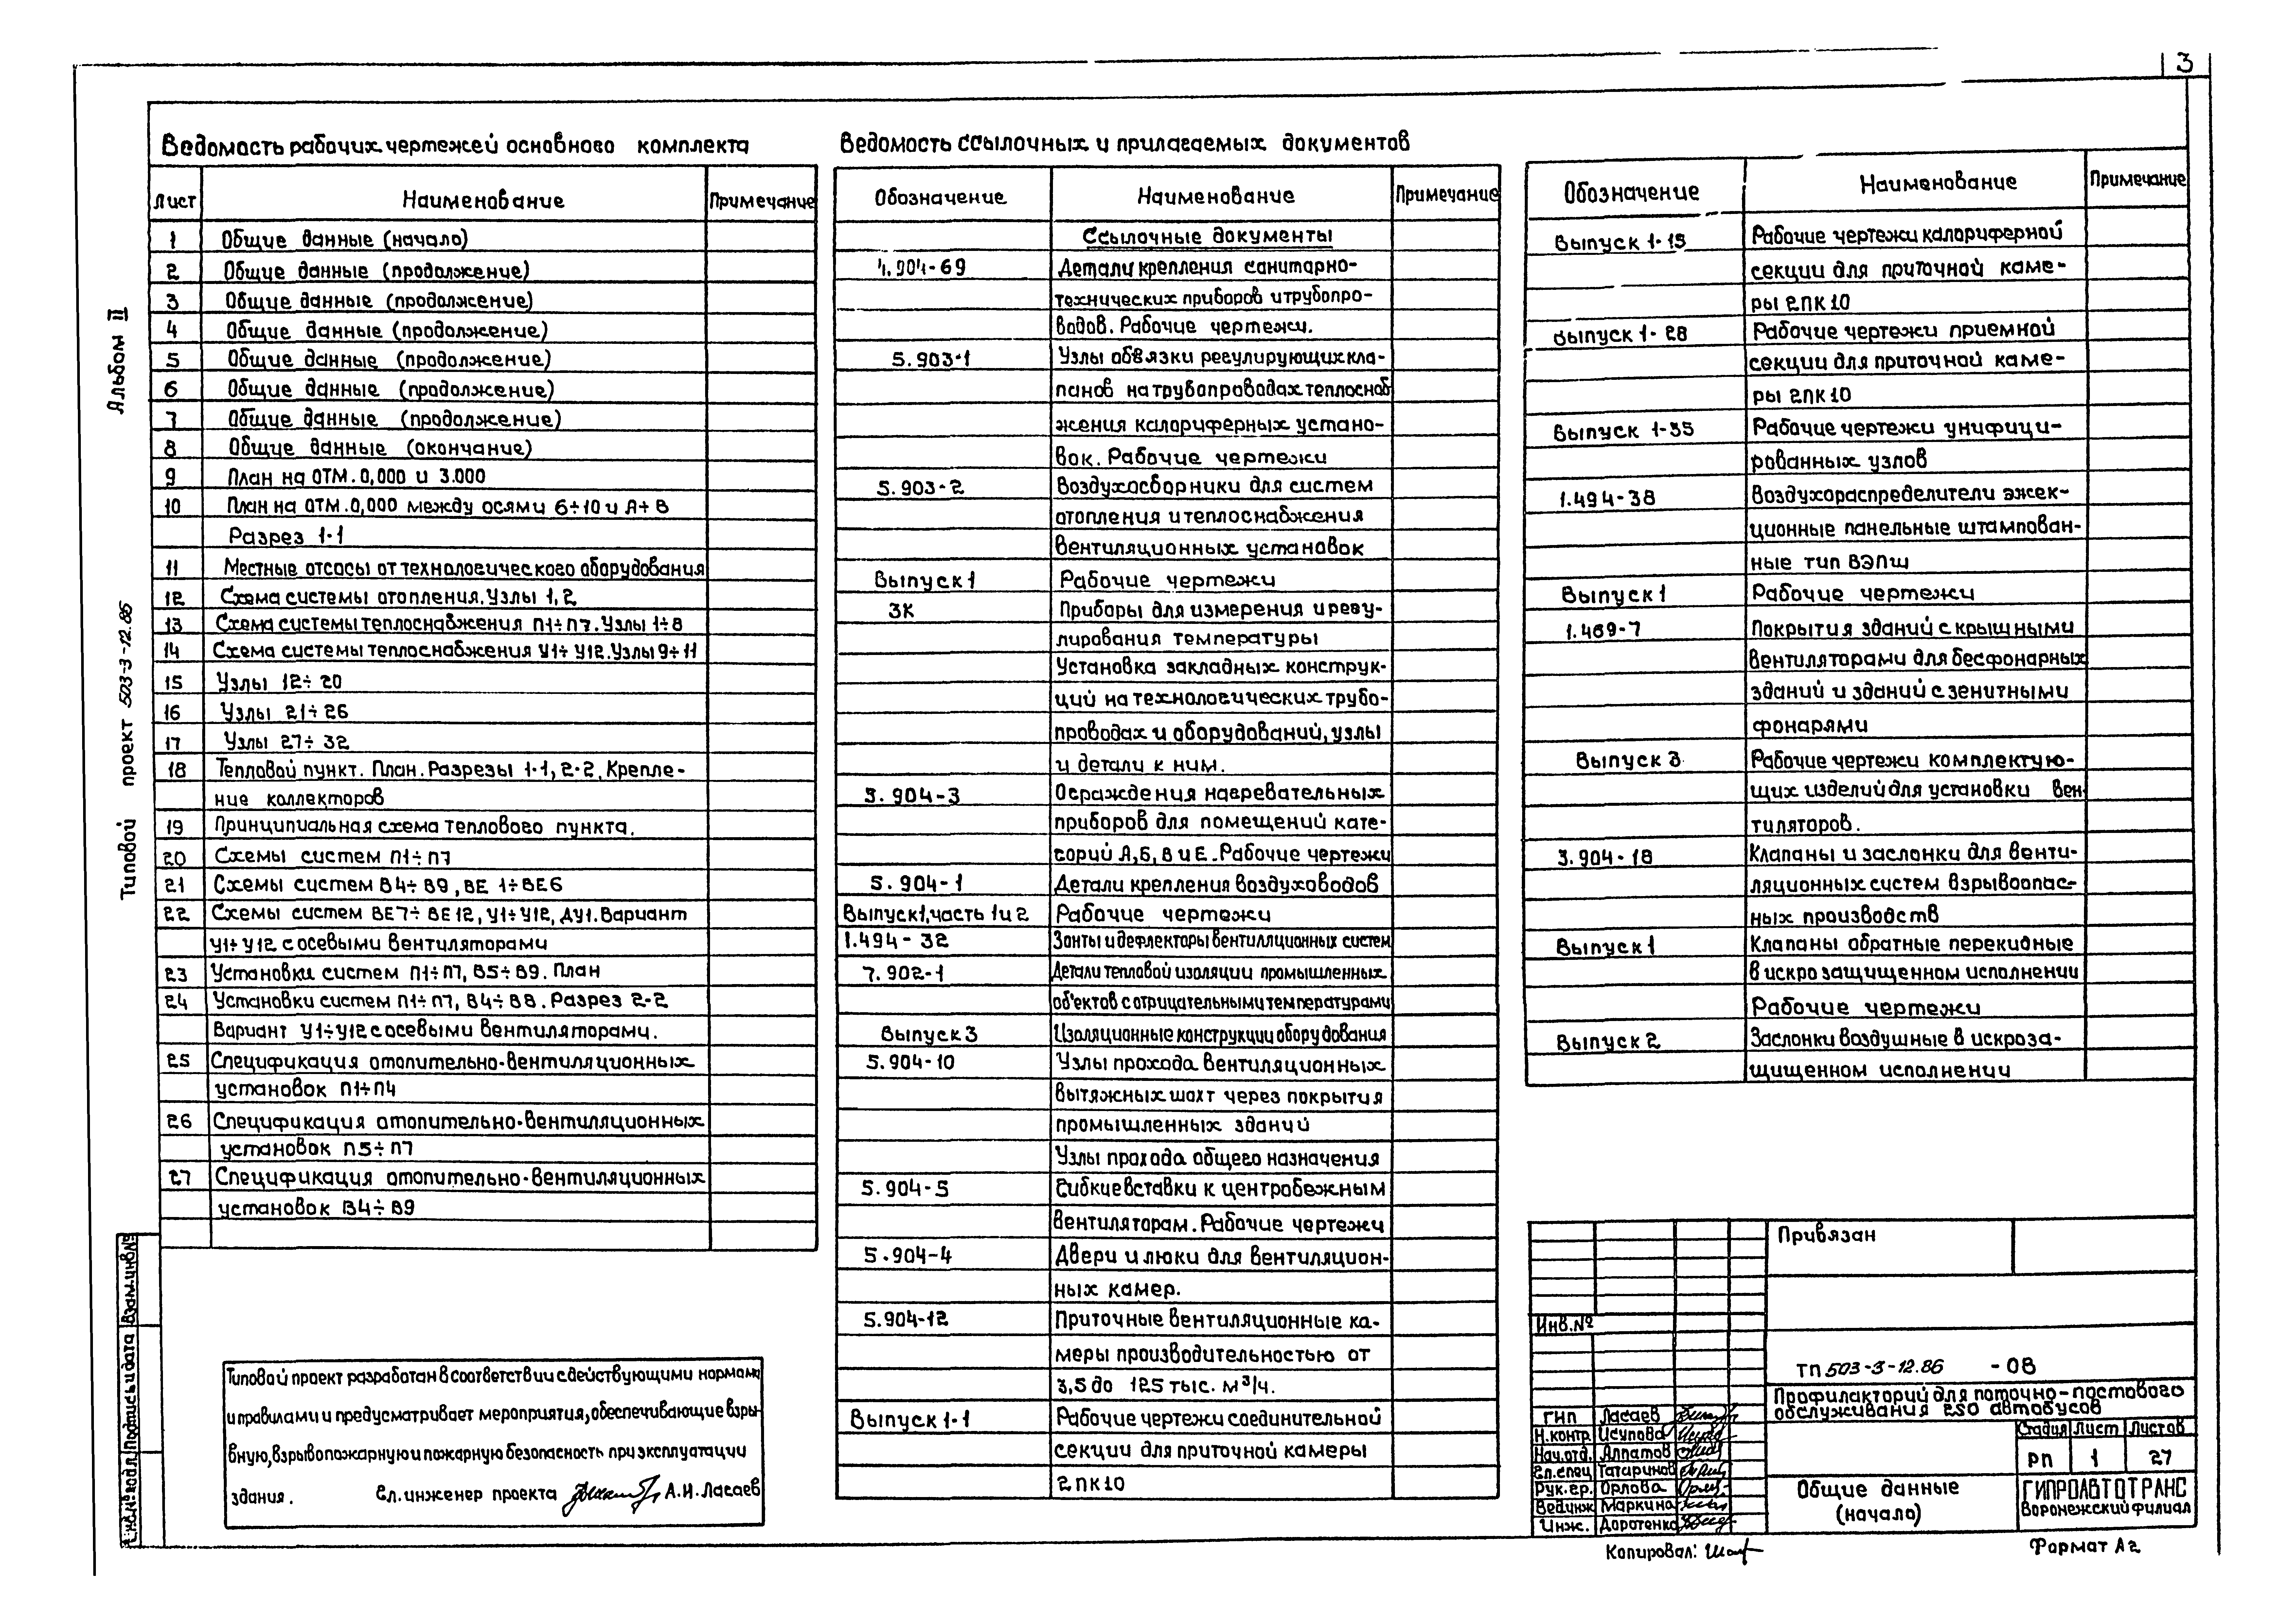 3
Альбом II
Типовой проект 503-3-12.86
Ведомость рабочих чертежей основного комплекта
Лист Наименование Примечание
1 Общие данные (начало)
2 Общие данные (продолжение)
3 Общие данные (продолжение)
4 Общие данные (продолжение)
5 Общие данные (продолжение)
6 Общие данные (продолжение)
7 Общие данные (продолжение)
8 Общие данные (окончание)
9 План на отм. 0,000 и 3.000
10 План на отм. 0,000 между осями 6÷10 и А÷В
Разрез 1-1
11 Местные отсосы от технологического оборудования
12 Схема системы отопления. Узлы 1, 2
13 Схема системы теплоснабжения П1÷П7. Узлы 1÷8
14 Схема системы теплоснабжения У1÷У12. Узлы 9÷11
15 Узлы 12÷20
16 Узлы 21÷26
17 Узлы 27÷32
18 Тепловой пункт. План. Разрезы 1-1, 2-2, Крепле-
ние коллекторов
19 Принципиальная схема теплового пункта.
20 Схемы систем П1÷П7
21 Схемы систем В4÷В9, ВЕ 1÷ВЕ6
22 Схемы систем ВЕ7÷ВЕ12, У1÷У12, ДУ1. Вариант
У1÷У12 с осевыми вентиляторами
23 Установки систем П1÷П7, В5÷В9. План
24 Установки систем П1÷П7, В4÷В8. Разрез 2-2
Вариант У1÷У12 с осевыми вентиляторами.
25 Спецификация отопительно-вентиляционных
установок П1÷П4
26 Спецификация отопительно-вентиляционных
установок П5÷П7
27 Спецификация отопительно-вентиляционных
установок В4÷В9
Типовой проект разработан в соответствии с действующими нормами
и правилами и предусматривает мероприятия, обеспечивающие взры-
вную, взрывопожарную и пожарную безопасность при эксплуатации
здания. Гл. инженер проекта А.И. Ласаев
Ведомость ссылочных и прилагаемых документов
Обозначение Наименование Примечание
Ссылочные документы
4.904-69 Детали крепления санитарно-
технических приборов и трубопро-
водов. Рабочие чертежи.
5.903-1 Узлы обвязки регулирующих кла-
панов на трубопроводах теплоснаб
жения калориферных устано-
вок. Рабочие чертежи
5.903-2 Воздухосборники для систем
отопления и теплоснабжения
вентиляционных установок
Выпуск 1 Рабочие чертежи
3К Приборы для измерения и регу-
лирования температуры
Установка закладных конструк-
ций на технологических трубо-
проводах и оборудований, узлы
и детали к ним.
3.904-3 Ограждения нагревательных
приборов для помещений кате-
горий А, Б, В и Е. Рабочие чертежи
5.904-1 Детали крепления воздуховодов
Выпуск 1, часть 1 и 2 Рабочие чертежи
1.494-32 Зонты и дефлекторы вентиляционных систем
7.902-1 Детали тепловой изоляции промышленных
объектов с отрицательными температурами
Выпуск 3 Изоляционные конструкции оборудования
5.904-10 Узлы прохода вентиляционных
вытяжных шахт через покрытия
промышленных зданий
Узлы прохода общего назначения
5.904-5 Гибкие вставки к центробежным
вентиляторам. Рабочие чертежи
5.904-4 Двери и люки для вентиляцион-
ных камер.
5.904-12 Приточные вентиляционные ка-
меры производительностью от
3,5 до 125 тыс. м³/ч.
Выпуск 1-1 Рабочие чертежи соединительной
секции для приточной камеры
2ПК10
Обозначение Наименование Примечание
Выпуск 1-15 Рабочие чертежи калориферной
секции для приточной каме-
ры 2ПК10
Выпуск 1-28 Рабочие чертежи приемной
секции для приточной каме-
ры 2ПК10
Выпуск 1-35 Рабочие чертежи унифици-
рованных узлов
1.494-38 Воздухораспределители эжек-
ционные панельные штампован-
ные тип ВЭПш
Выпуск 1 Рабочие чертежи
1.469-7 Покрытия зданий с крышными
вентиляторами для бесфонарных
зданий и зданий с зенитными
фонарями
Выпуск 3 Рабочие чертежи комплектую-
щих изделий для установки вен-
тиляторов.
3.904-18 Клапаны и заслонки для венти-
ляционных систем взрывоопас-
ных производств
Выпуск 1 Клапаны обратные перекидные
в искрозащищенном исполнении
Рабочие чертежи
Выпуск 2 Заслонки воздушные в искроза-
щищенном исполнении
Привязан
Инв. №
ТП 503-3-12.86 -ОВ
Профилакторий для поточно-постового
обслуживания 250 автобусов
ГИП Ласаев
Н.контр. Исупова
Нач.отд. Алпатов
Гл.спец Татаринов
Рук.гр. Орлова
Вед.инж Маркина
Инж. Доротенко
Стадия Лист Листов
РП 1 27
Общие данные
(начало)
ГИПРОАВТОТРАНС
Воронежский филиал
Копировал:
Формат А2
Инв.№ подл. Подпись и дата Взам.инв№